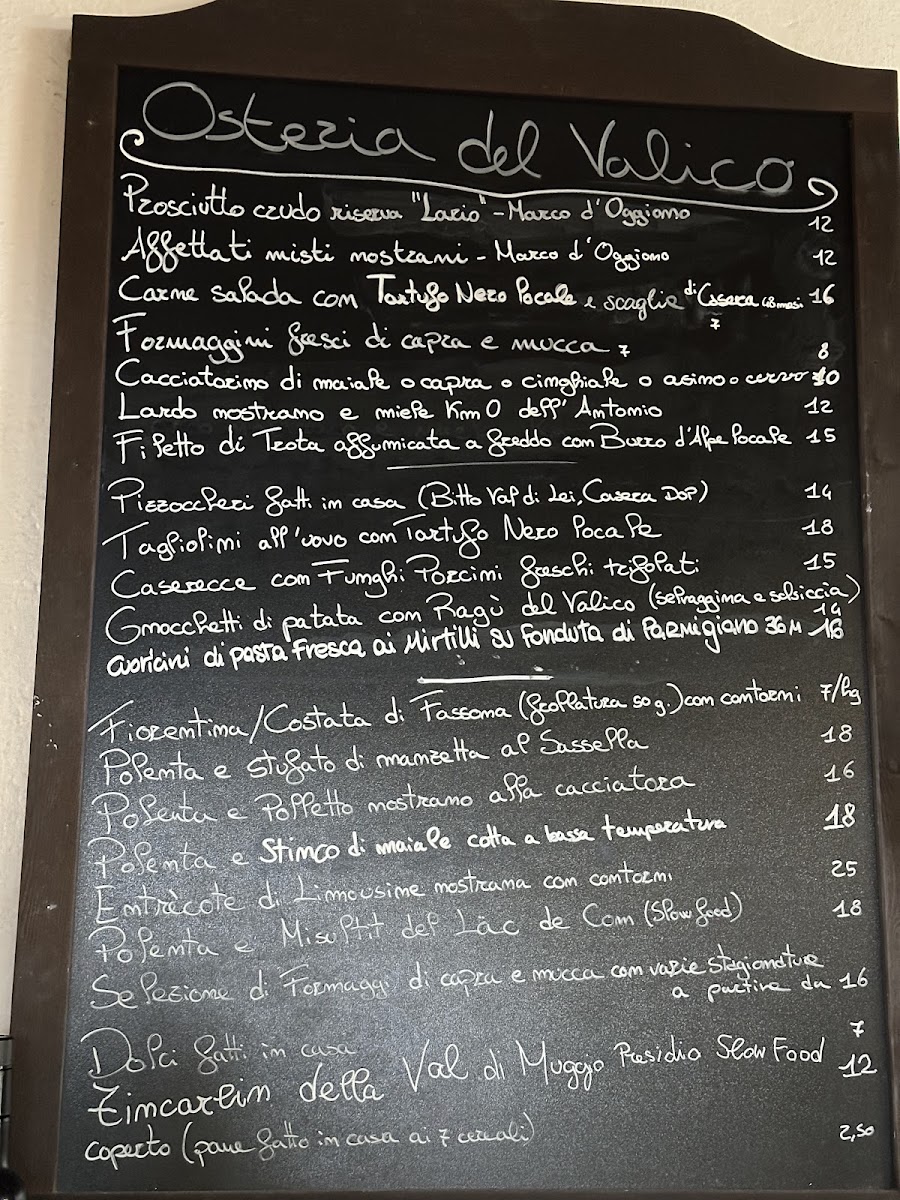 Osteria del Valico
Prosciutto crudo riserva "Lario" - Marco d'Oggiono 12
Affettati misti nostrani - Marco d'Oggiono 12
Carne salada con Tartufo Nero Locale e scaglie di Casera 18 mesi 16
7
Formaggini freschi di capra e mucca 7 8
Cacciatorino di maiale o capra o cinghiale o asino o cervo 10
Lardo nostrano e miele Km0 dell'Antonio 12
Filetto di Trota affumicata a freddo con Burro d'Alpe Locale 15
Pizzoccheri fatti in casa (Bitto Val di Lei, Casera DOP) 14
Tagliolini all'uovo con Tartufo Nero Locale 18
Caserecce con Funghi Porcini freschi trifolati 15
Gnocchetti di patata con Ragù del Valico (selvaggina e salsiccia) 14
cuoricini di pasta fresca ai Mirtilli su Fonduta di Parmigiano 36 M 16
Fiorentina/Costata di Fassona (frollatura 50 g.) con contorni 7/hg
Polenta e stufato di manzetta al Sassella 18
Polenta e Polletto nostrano alla cacciatora 16
Polenta e Stinco di maiale cotto a bassa temperatura 18
Entrècote di Limousine nostrana con contorni 25
Polenta e Misultit del Läc de Com (Slow food) 18
Selezione di Formaggi di capra e mucca con varie stagionature
a partire da 16
Dolci fatti in casa 7
Zincarlin della Val di Muggio Presidio Slow Food 12
coperto (pane fatto in casa ai 7 cereali) 2,50